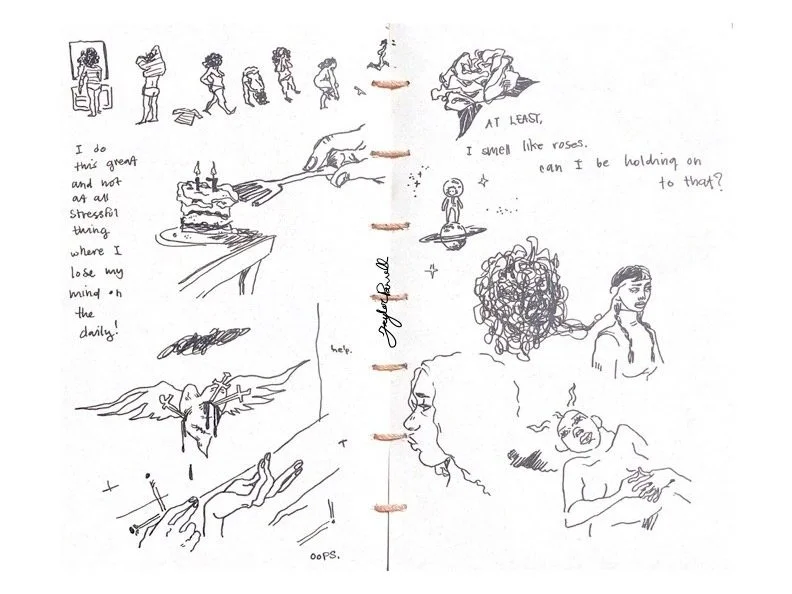 I do
this great
and not
at all
stressful
thing
where I
lose my
mind on
the
daily!
help.
OOPS.
Taylor Powell
AT LEAST,
I smell like roses.
can I be holding on
to that?